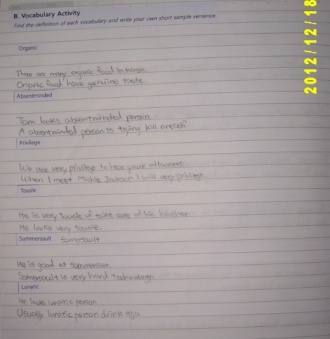 B. Vocabulary Activity
Find the definition of each vocabulary and write your own short sample sentence.
2012/12/18
Organic
There are many organic food in
Organic food have genuine taste.
Absentminded
Tom looks absentminded person
A absentminded person is trying kill oneself
Privilege
We are very privilege to hear your
When I meet Michle Jackson I will very privilege.
Tousle
He is very tousle of take care of his
He looks very tousle.
Summersault Somersault
He is good at
Somersault is very hard technology.
Lunatic
He looks lunatic person
Usually lunatic person drink